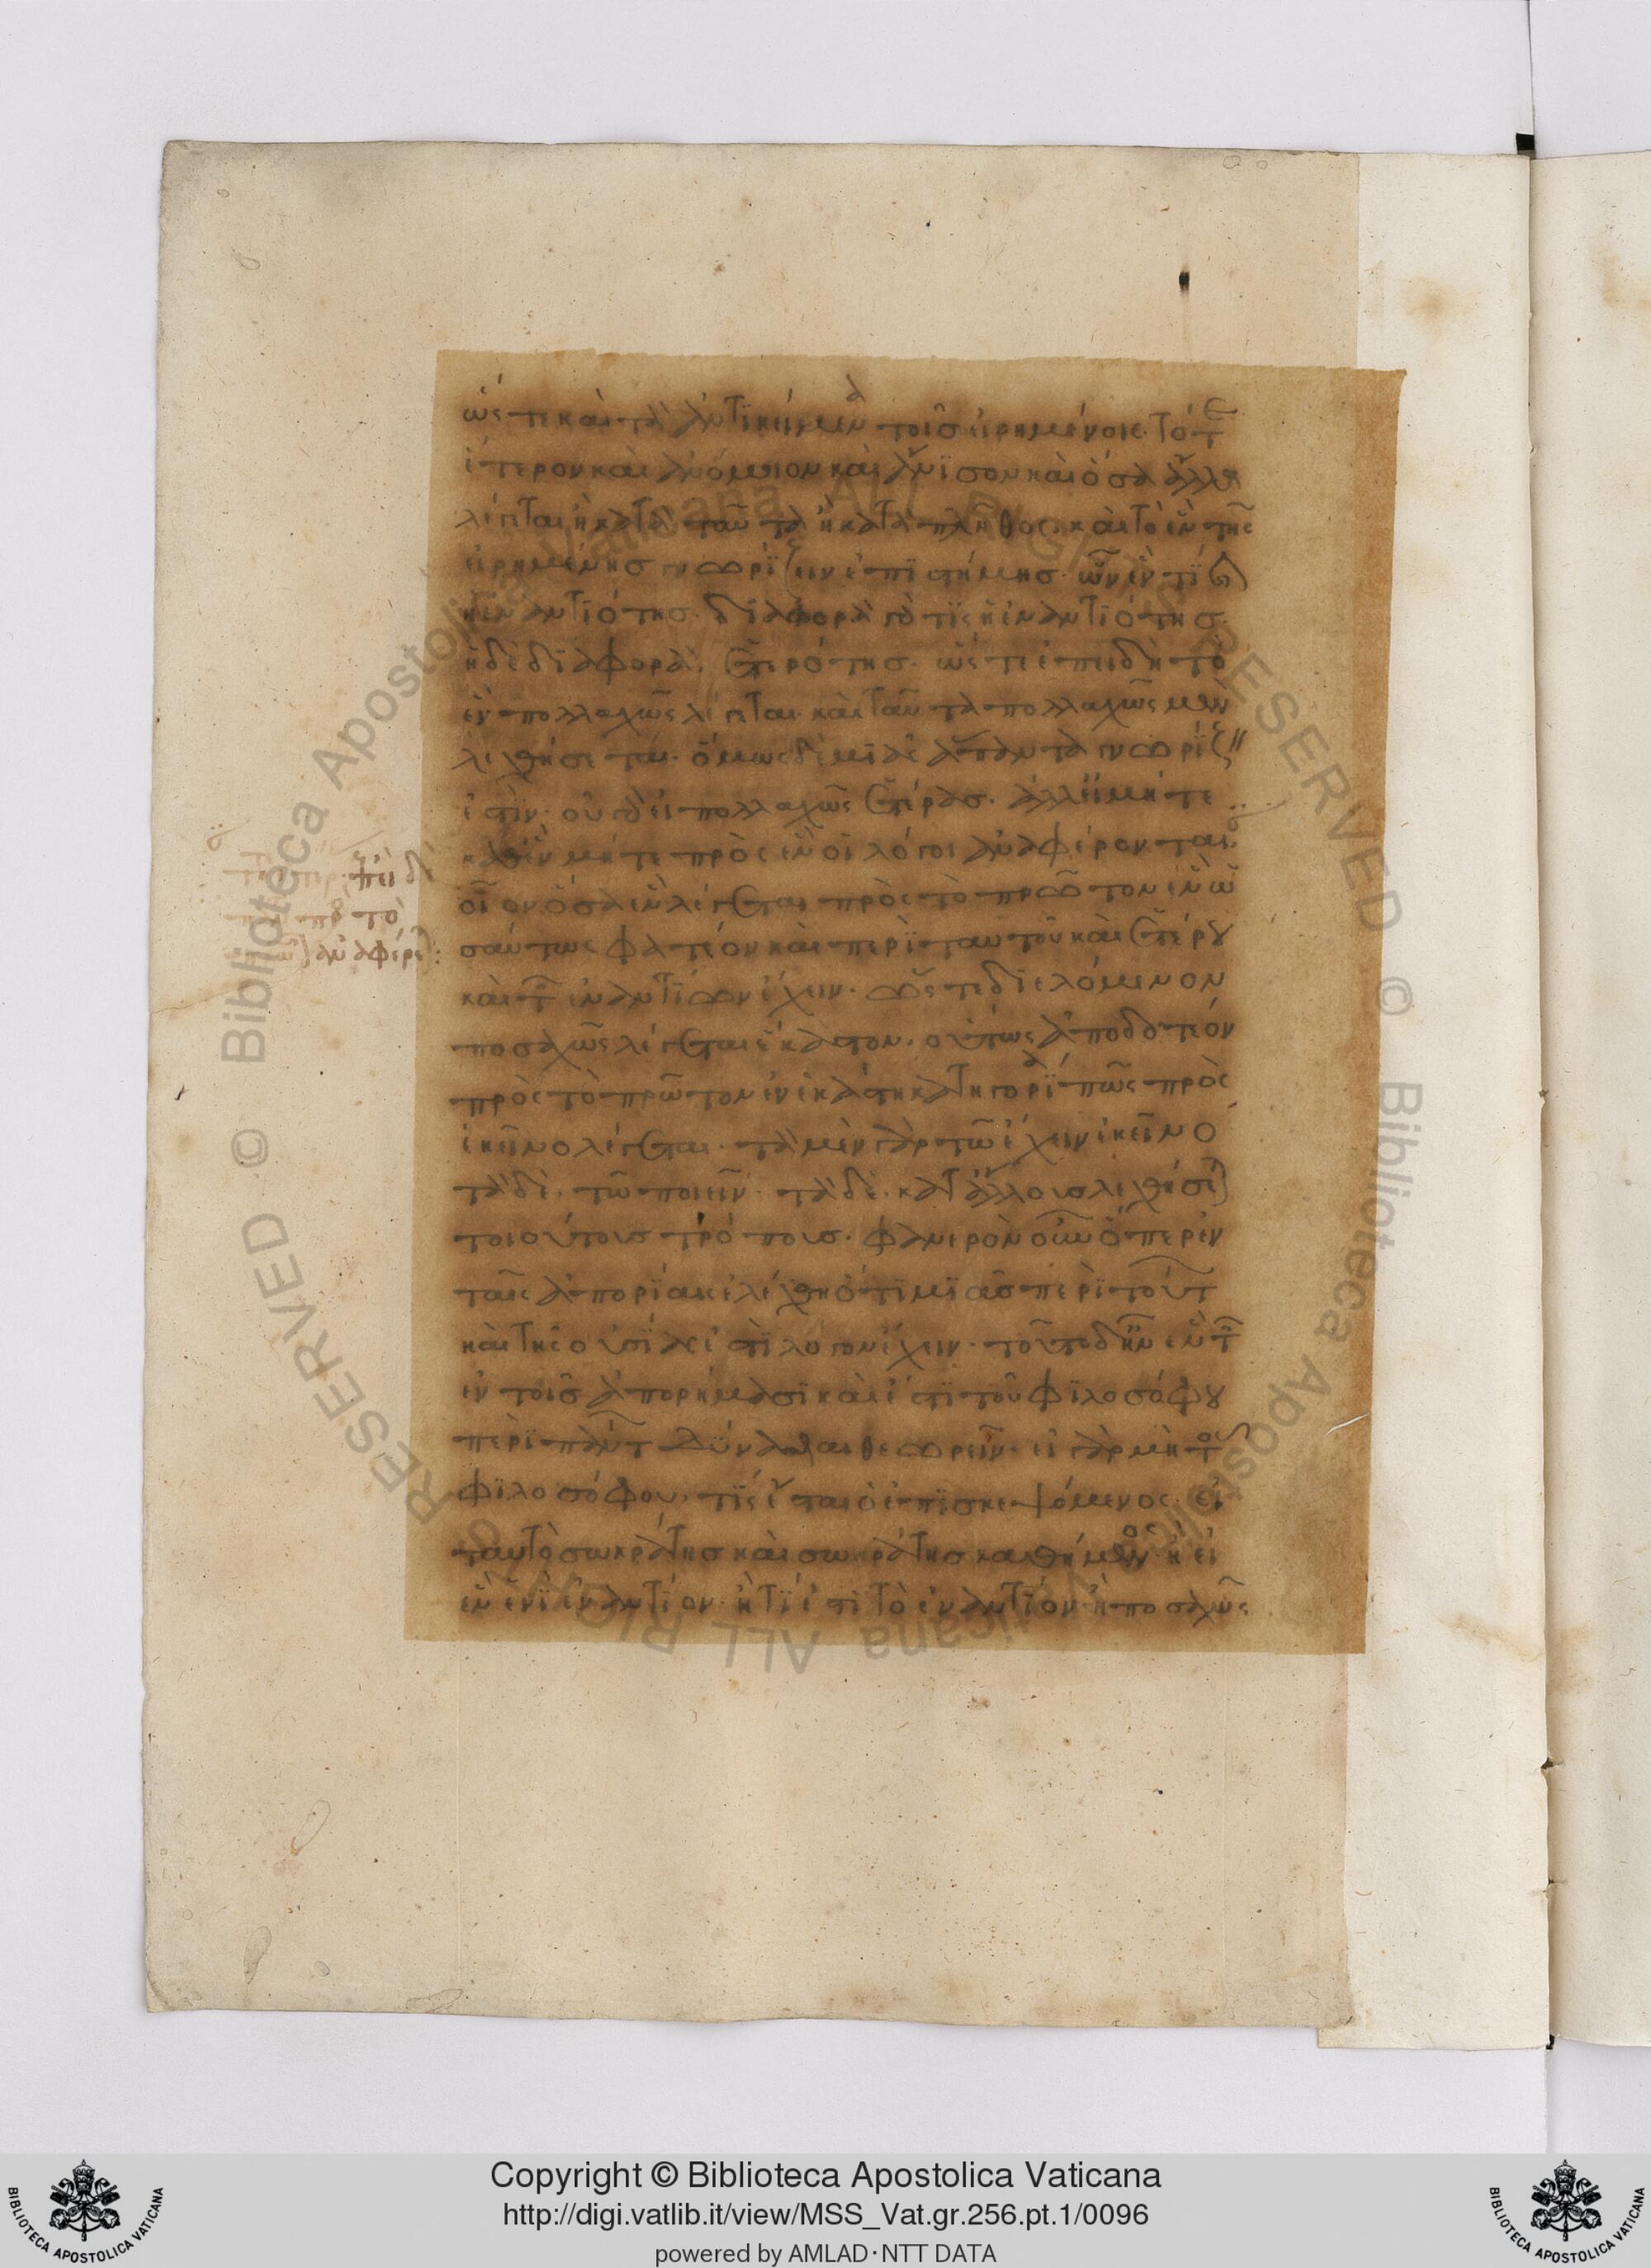 ὥστε καὶ τὰ ἀντικείμενα τοῖς εἰρημένοις τότε
ἕτερον καὶ ἀνόμοιον καὶ ἄνισον καὶ ὅσα ἄλλα
λέγεται ἢ κατὰ ταῦτα ἢ κατὰ πλῆθος καὶ τὸ ἓν τῆς
εἰρημένης γνωρίζειν ἐπιστήμης· ὧν ἐν τί
ἡ ἐναντιότης· διαφορὰ γάρ τις ἡ ἐναντιότης·
ἡ δὲ διαφορὰ ἑτερότης· ὥστε ἐπειδὴ τὸ
ἓν πολλαχῶς λέγεται· καὶ ταῦτα πολλαχῶς μὲν
λεχθήσεται· ὅμως δὲ μιᾶς ἅπαντα γνωρίζειν
ἐστίν· οὐ γὰρ εἰ πολλαχῶς ἑτέρας· ἀλλ' εἰ μήτε
καθ' ἓν μήτε πρὸς ἓν οἱ λόγοι ἀναφέρονται·
οἷον ὅσα ἓν λέγεται πρὸς τὸ πρῶτον ἓν ὡ
σαύτως φατέον καὶ περὶ ταυτοῦ καὶ ἑτέρου
καὶ τῶν ἐναντίων ἔχειν· ὥστε διελόμενον
ποσαχῶς λέγεται ἕκαστον· οὕτως ἀποδοτέον
πρὸς τὸ πρῶτον ἐν ἑκάστῃ κατηγορίᾳ πῶς πρὸς
ἐκεῖνο λέγεται· τὰ μὲν γὰρ τῷ ἔχειν ἐκεῖνο
τὰ δὲ τῷ ποιεῖν· τὰ δὲ κατ' ἄλλους λεχθήσεται
τοιούτους τρόπους· φανερὸν οὖν ὅπερ ἐν
ταῖς ἀπορίαις ἐλέχθη ὅτι μιᾶς περὶ τούτων
καὶ τῆς οὐσίας ἐστὶ λόγον ἔχειν· τοῦτο δ' ἦν ἓν τῶν
ἐν τοῖς ἀπορήμασι καὶ ἔστι τοῦ φιλοσόφου
περὶ πάντων δύνασθαι θεωρεῖν· εἰ γὰρ μὴ τοῦ
φιλοσόφου, τίς ἔσται ὁ ἐπισκεψόμενος· εἰ
ταυτὸ σωκράτης καὶ σωκράτης καθήμενος· ἢ εἰ
ἓν ἑνὶ ἐναντίον· ἢ τί ἐστι τὸ ἐναντίον· ἢ ποσαχῶς
Copyright © Biblioteca Apostolica Vaticana
http://digi.vatlib.it/view/MSS_Vat.gr.256.pt.1/0096
powered by AMLAD·NTT DATA